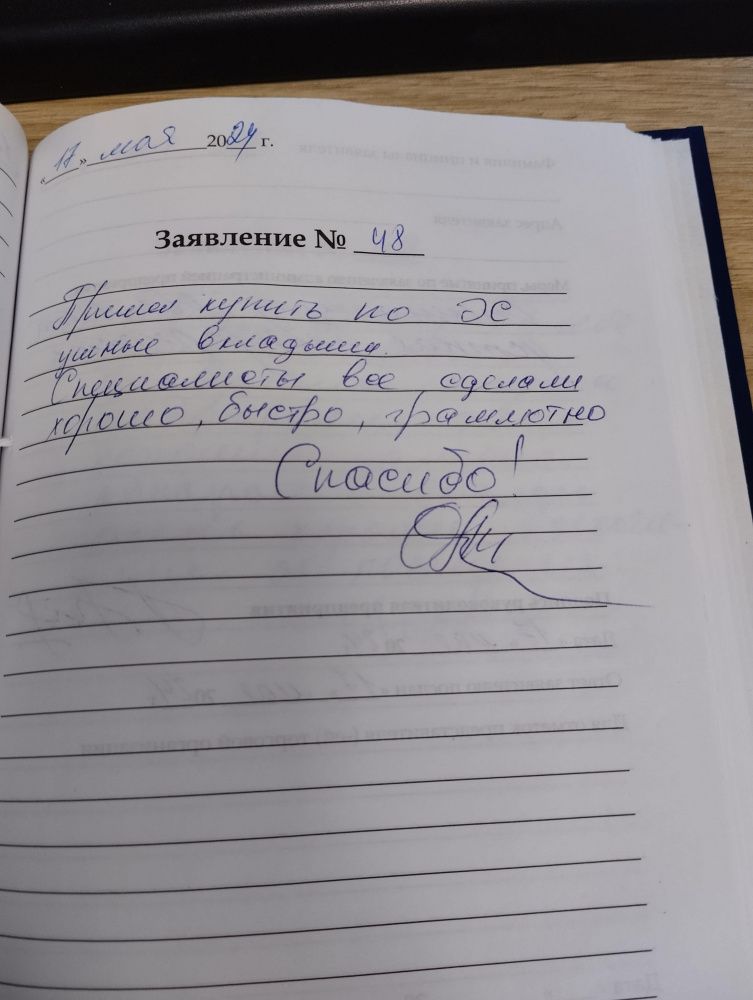 « 17 » мая 2024 г.
Заявление № 48
Пришел купить по ЭС
ушные вкладыши.
Специалисты все сделали
хорошо, быстро, грамотно
Спасибо!